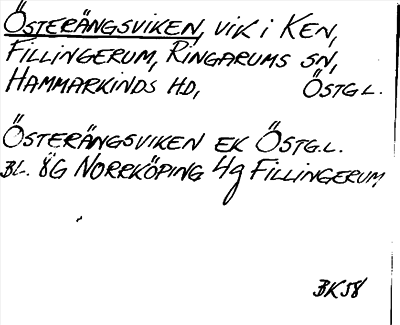 Österängsviken, vik i Ken,
Fillingerum, Ringarums sn,
Hammarkinds hd, Östg L.
Österängsviken EK Östg.L.
Bl. 8G Norrköping 4g Fillingerum
BK58